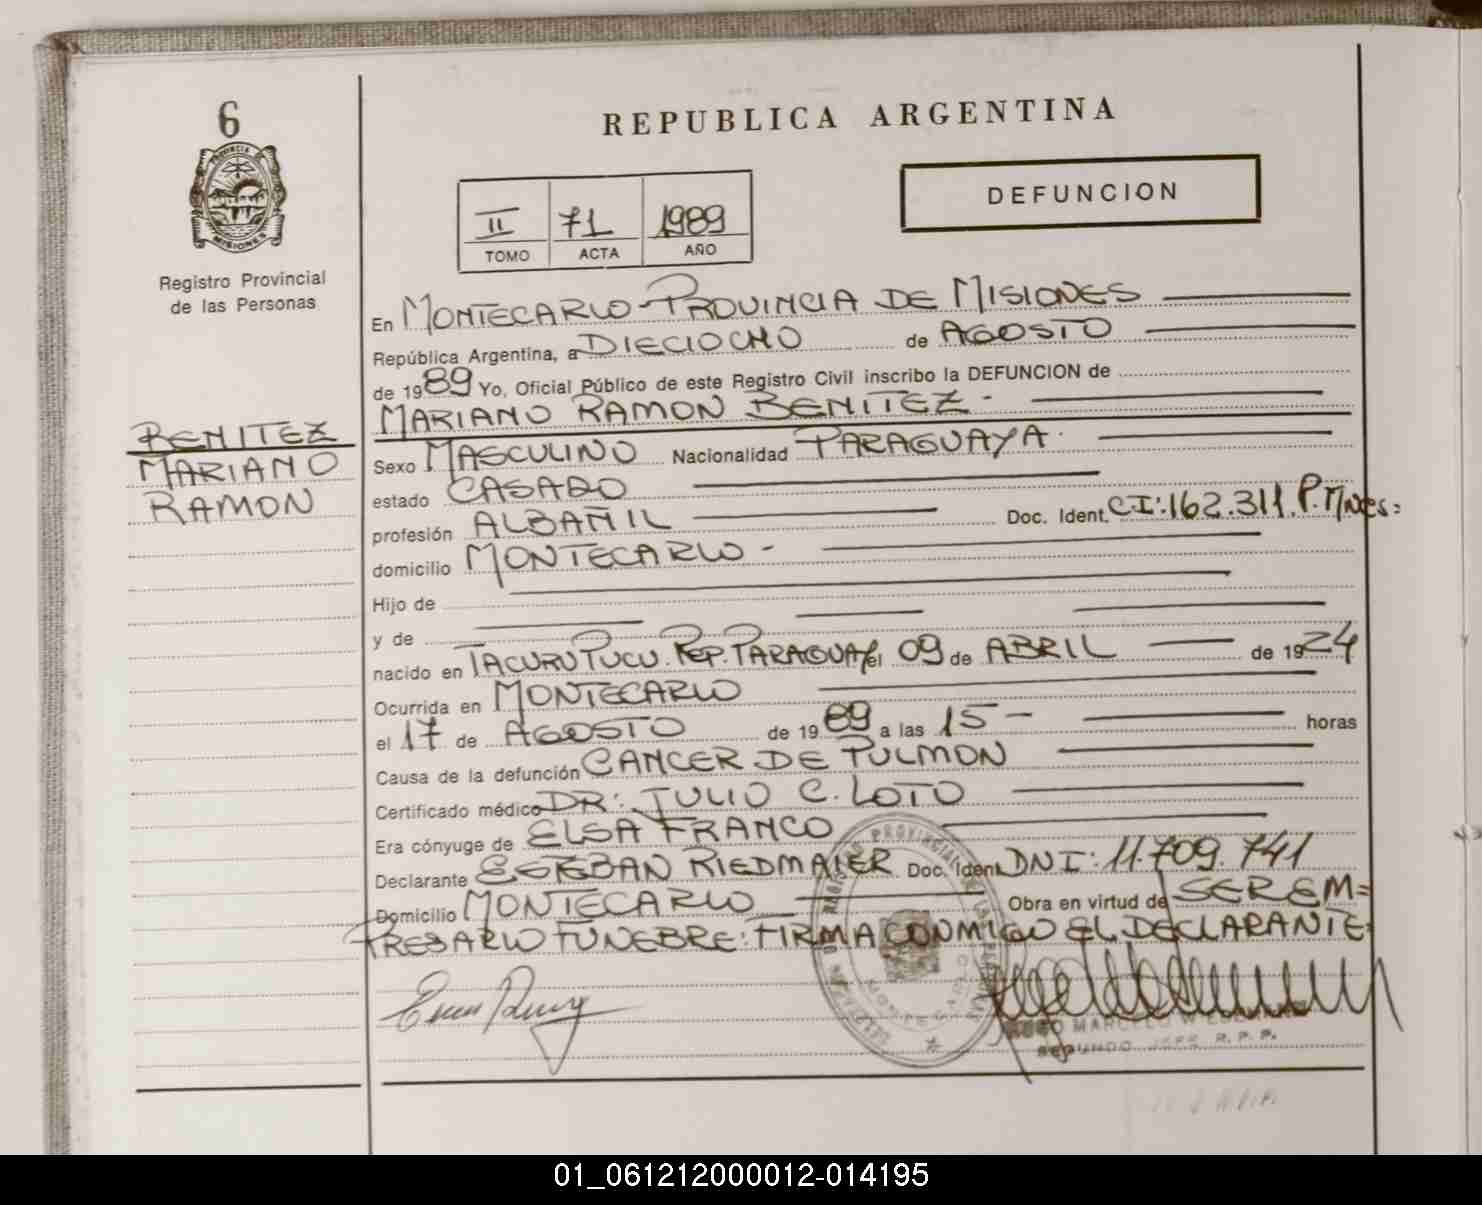 6
PROVINCIA DE
MISIONES
Registro Provincial
de las Personas
BENITEZ
MARIANO
RAMON
REPUBLICA ARGENTINA
DEFUNCION
II 71 1989
TOMO ACTA AÑO
En MONTECARLO-PROVINCIA DE MISIONES
República Argentina, a DIECIOCHO de AGOSTO
de 1989 Yo, Oficial Público de este Registro Civil inscribo la DEFUNCION de
MARIANO RAMON BENITEZ.
Sexo MASCULINO Nacionalidad PARAGUAYA.
estado CASADO
profesión ALBAÑIL Doc. Ident. CI:162.311.P.Mnes:
domicilio MONTECARLO-
Hijo de
y de
nacido en TACURU PUCU. REP. PARAGUAY el 09 de ABRIL de 1924
Ocurrida en MONTECARLO
el 17 de AGOSTO de 1989 a las 15- horas
Causa de la defunción CANCER DE PULMON
Certificado médico DR: JULIO C. LOTO
Era cónyuge de ELSA FRANCO
Declarante ESTEBAN RIEDMAIER Doc. Ident. DNI: 11.709.741
Domicilio MONTECARLO Obra en virtud de SER EM=
PRESARIO FUNEBRE: FIRMA CONMIGO EL DECLARANTE
MONTECARLO
MARCELO
SEGUNDO JEFE R. P. P.
01_061212000012-014195